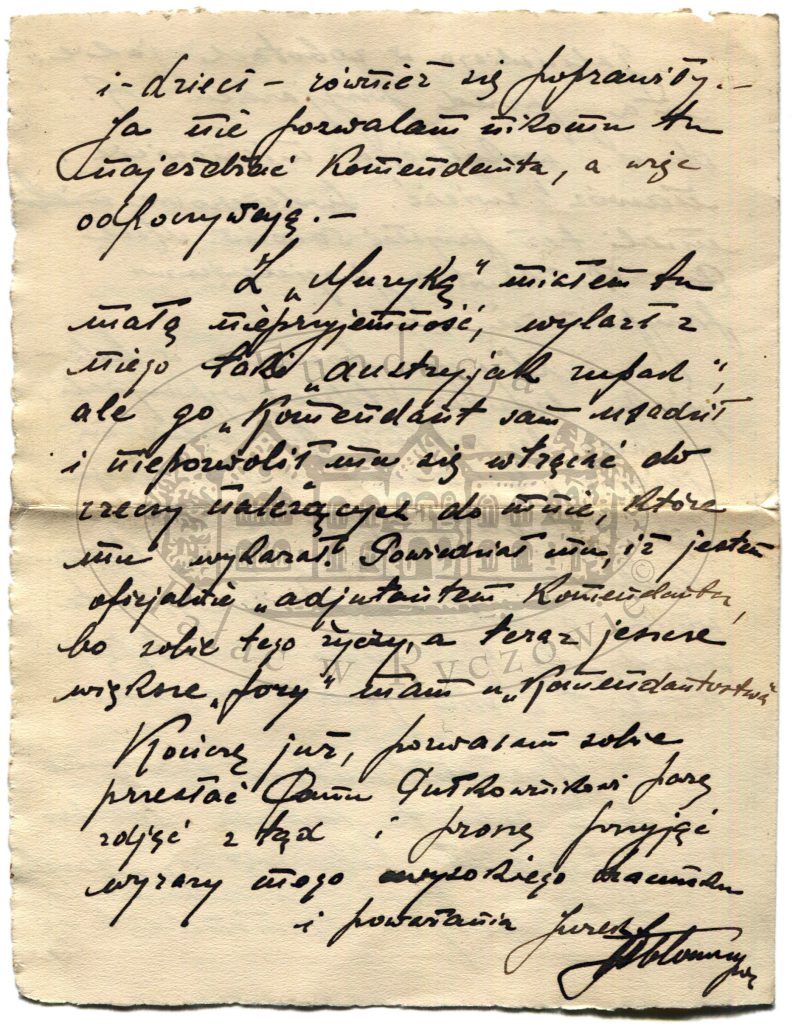 i - dzieci - również się poprawiły.-
Ja nie pozwalam nikomu tu
najeżdżać Komendanta, a więc
odpoczywają.-
Z „Muzyką" miałem tu
małą nieprzyjemność, wylazł z
niego taki „austryjak zupak",
ale go „Komendant sam usadził
i niepozwolił mu się wtrącać do
rzeczy należących do mnie, które
mu wykazał." Powiedział mu, iż jestem
oficjalnie „adjutantem Komendanta,
bo sobie tego życzy, a teraz jeszcze
większe „fory" mam u „Komendantostwa
Kończę już, pozwalam sobie
przesłać Panu Pułkownikowi parę
zdjęć z tąd i proszę przyjąć
wyrazy mego wysokiego szacunku
i poważania
Fundacja
Pałac w Ryczowie ©